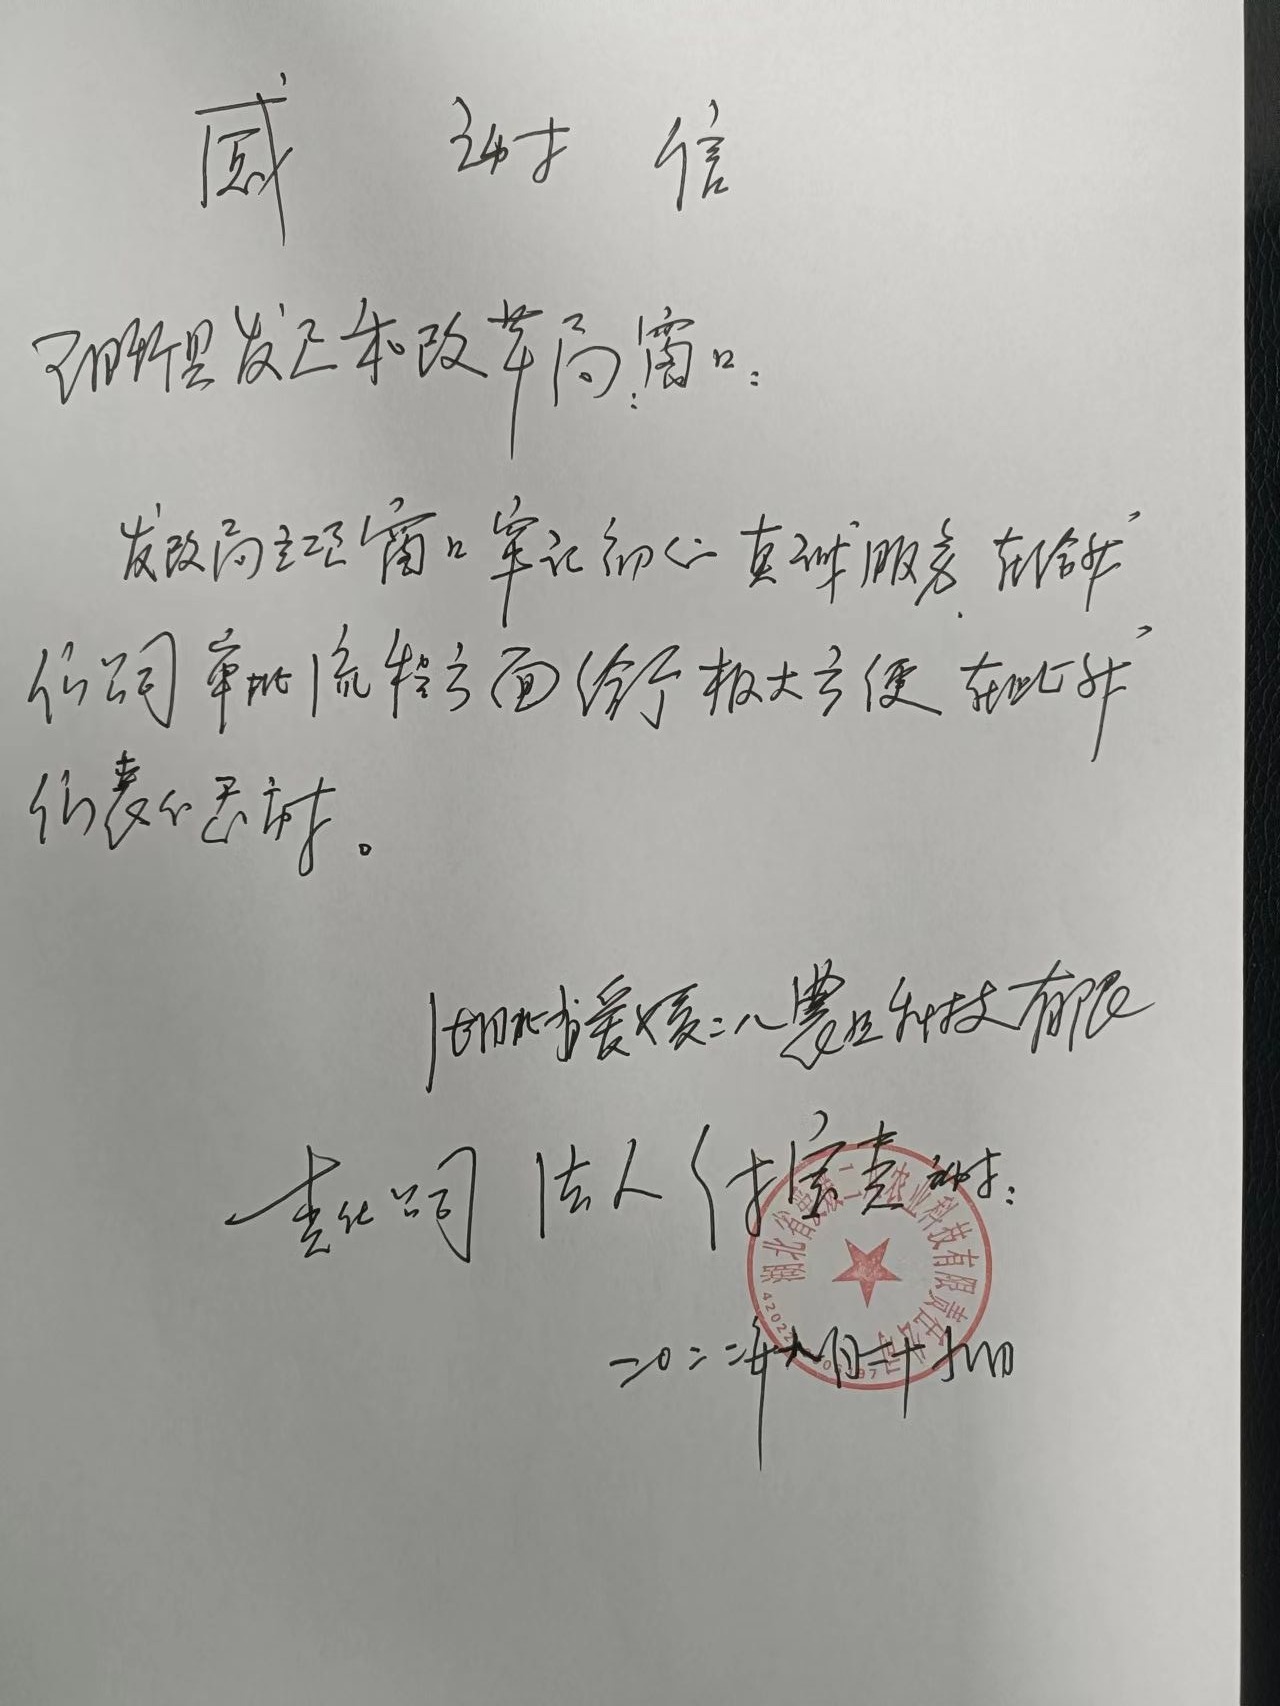 感谢信
阳新县发展和改革局窗口:
发改局立项窗口牢记初心真诚服务.在给我
们公司审批流程方面给予极大方便在此我
们表示感谢。
湖北省爱媛二八農业科技有限
责任公司 法人 付宝 谢:
二〇二二年九月二十 日
湖北省 媛二 农业科技有限责任公司